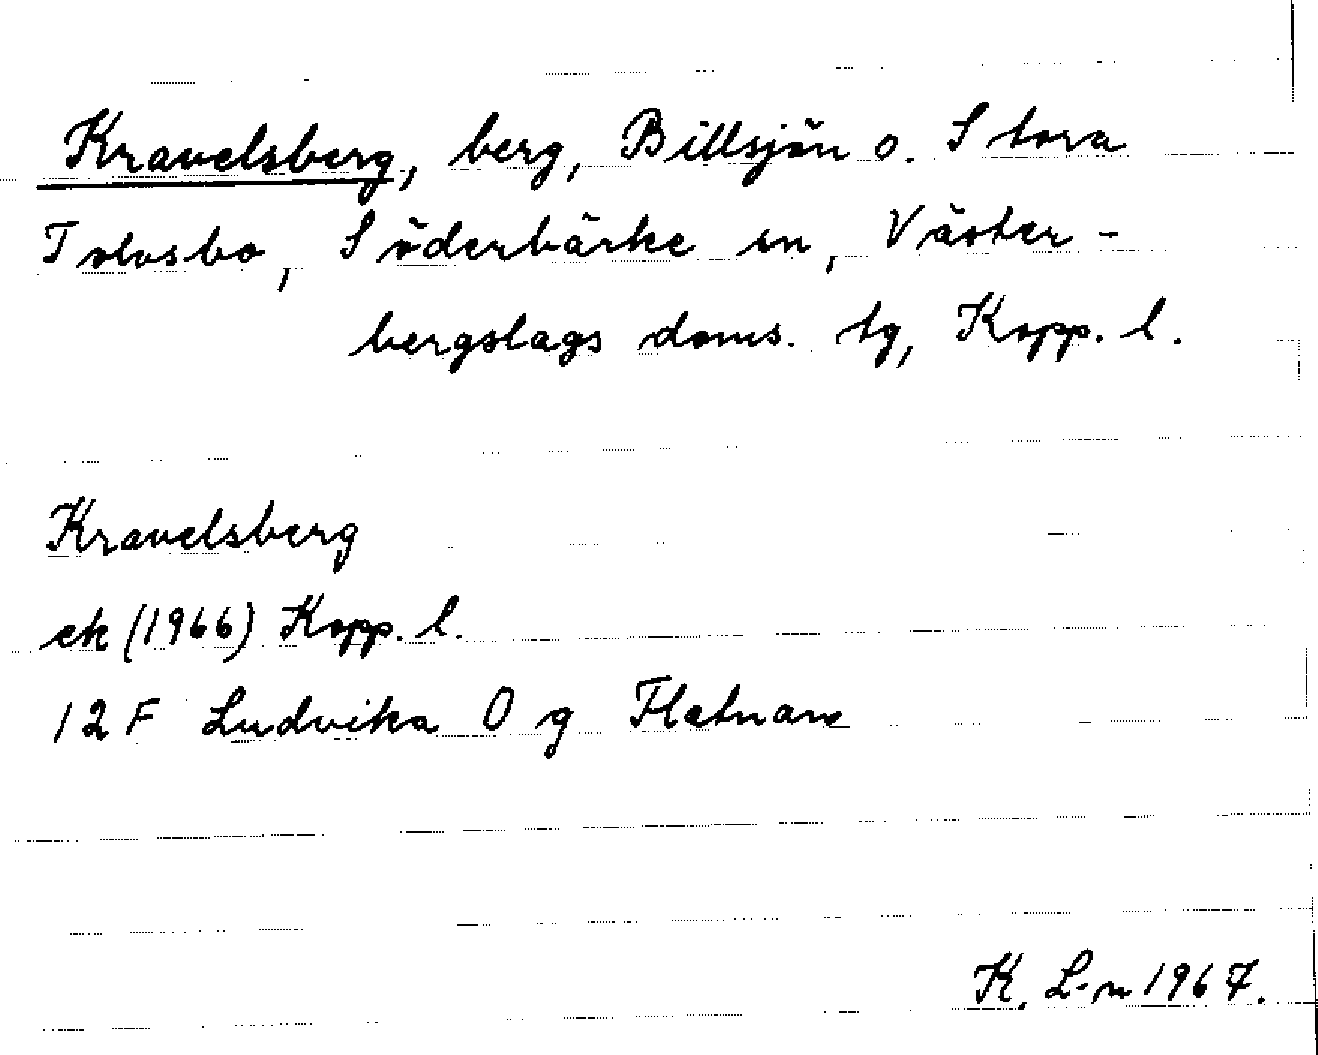 Kravelsberg, berg, Billsjön o. Stora
Tolvsbo, Söderbärke sn, Väster-
bergslags doms. tg, Kopp. l.
Kravelsberg
ek (1966) Kopp. l.
12 F Ludvika O g Flatnan
K. L-n 1967.